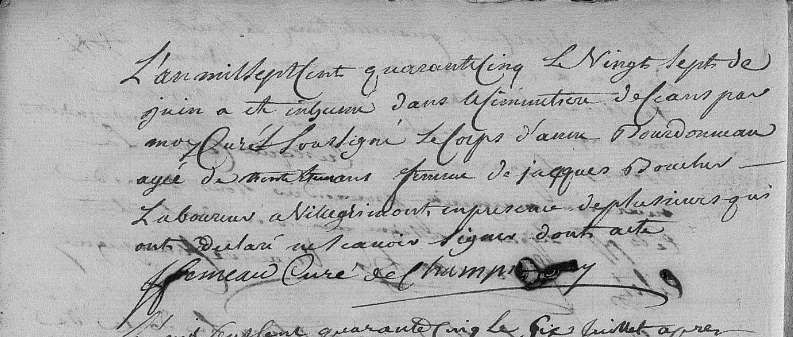 L'an mil Sept Cent quarante Cinq le Vingt Sept de
juin a eté inhumé dans le Cimmetiere de Ceans par
moy Curé Soussigné le Corps d'anne Bourdonneau
agée de ans femme de jacques Boucher
Laboureur a Villegrimont en presence de plusieurs qui
ont declaré ne scavoir signer dont acte
Curé de
L'an mil Sept Cent quarante Cinq le Six juillet apres